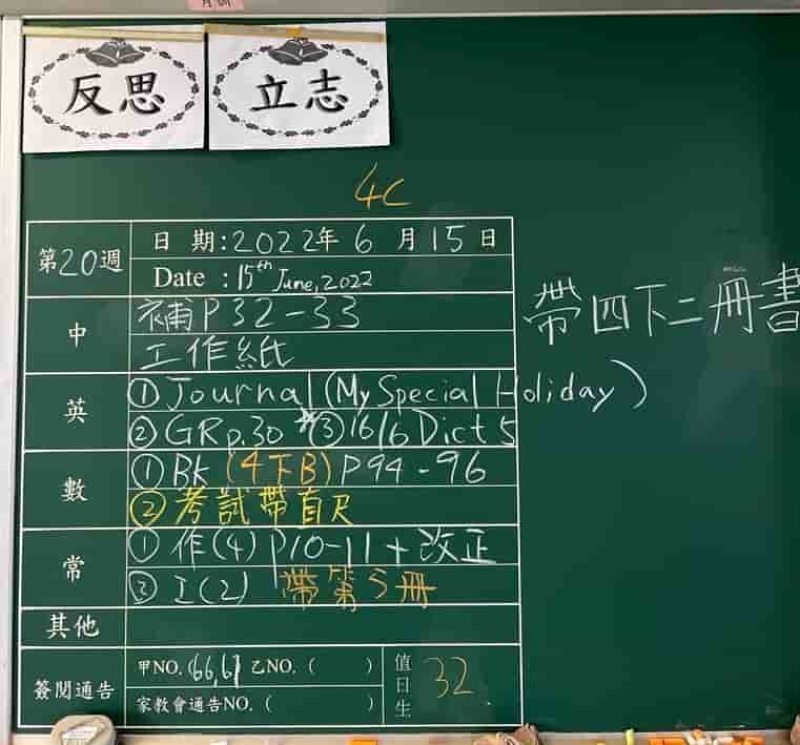 反思
立志
4C
第20週
日 期:2022年 6 月 15 日
Date :15th June, 2022
中
補P32-33
工作紙
帶四下二冊書
英
①Journal(My Special Holiday)
②GRp.30 *③16/6 Dict 5
數
①Bk (4下B) P94-96
②考試帶直尺
常
①作(4)P10-11+改正
②工(2) 帶第5冊
其他
簽閱通告
甲NO.(66,67 乙NO.( )
家教會通告NO.( )
值日生
32